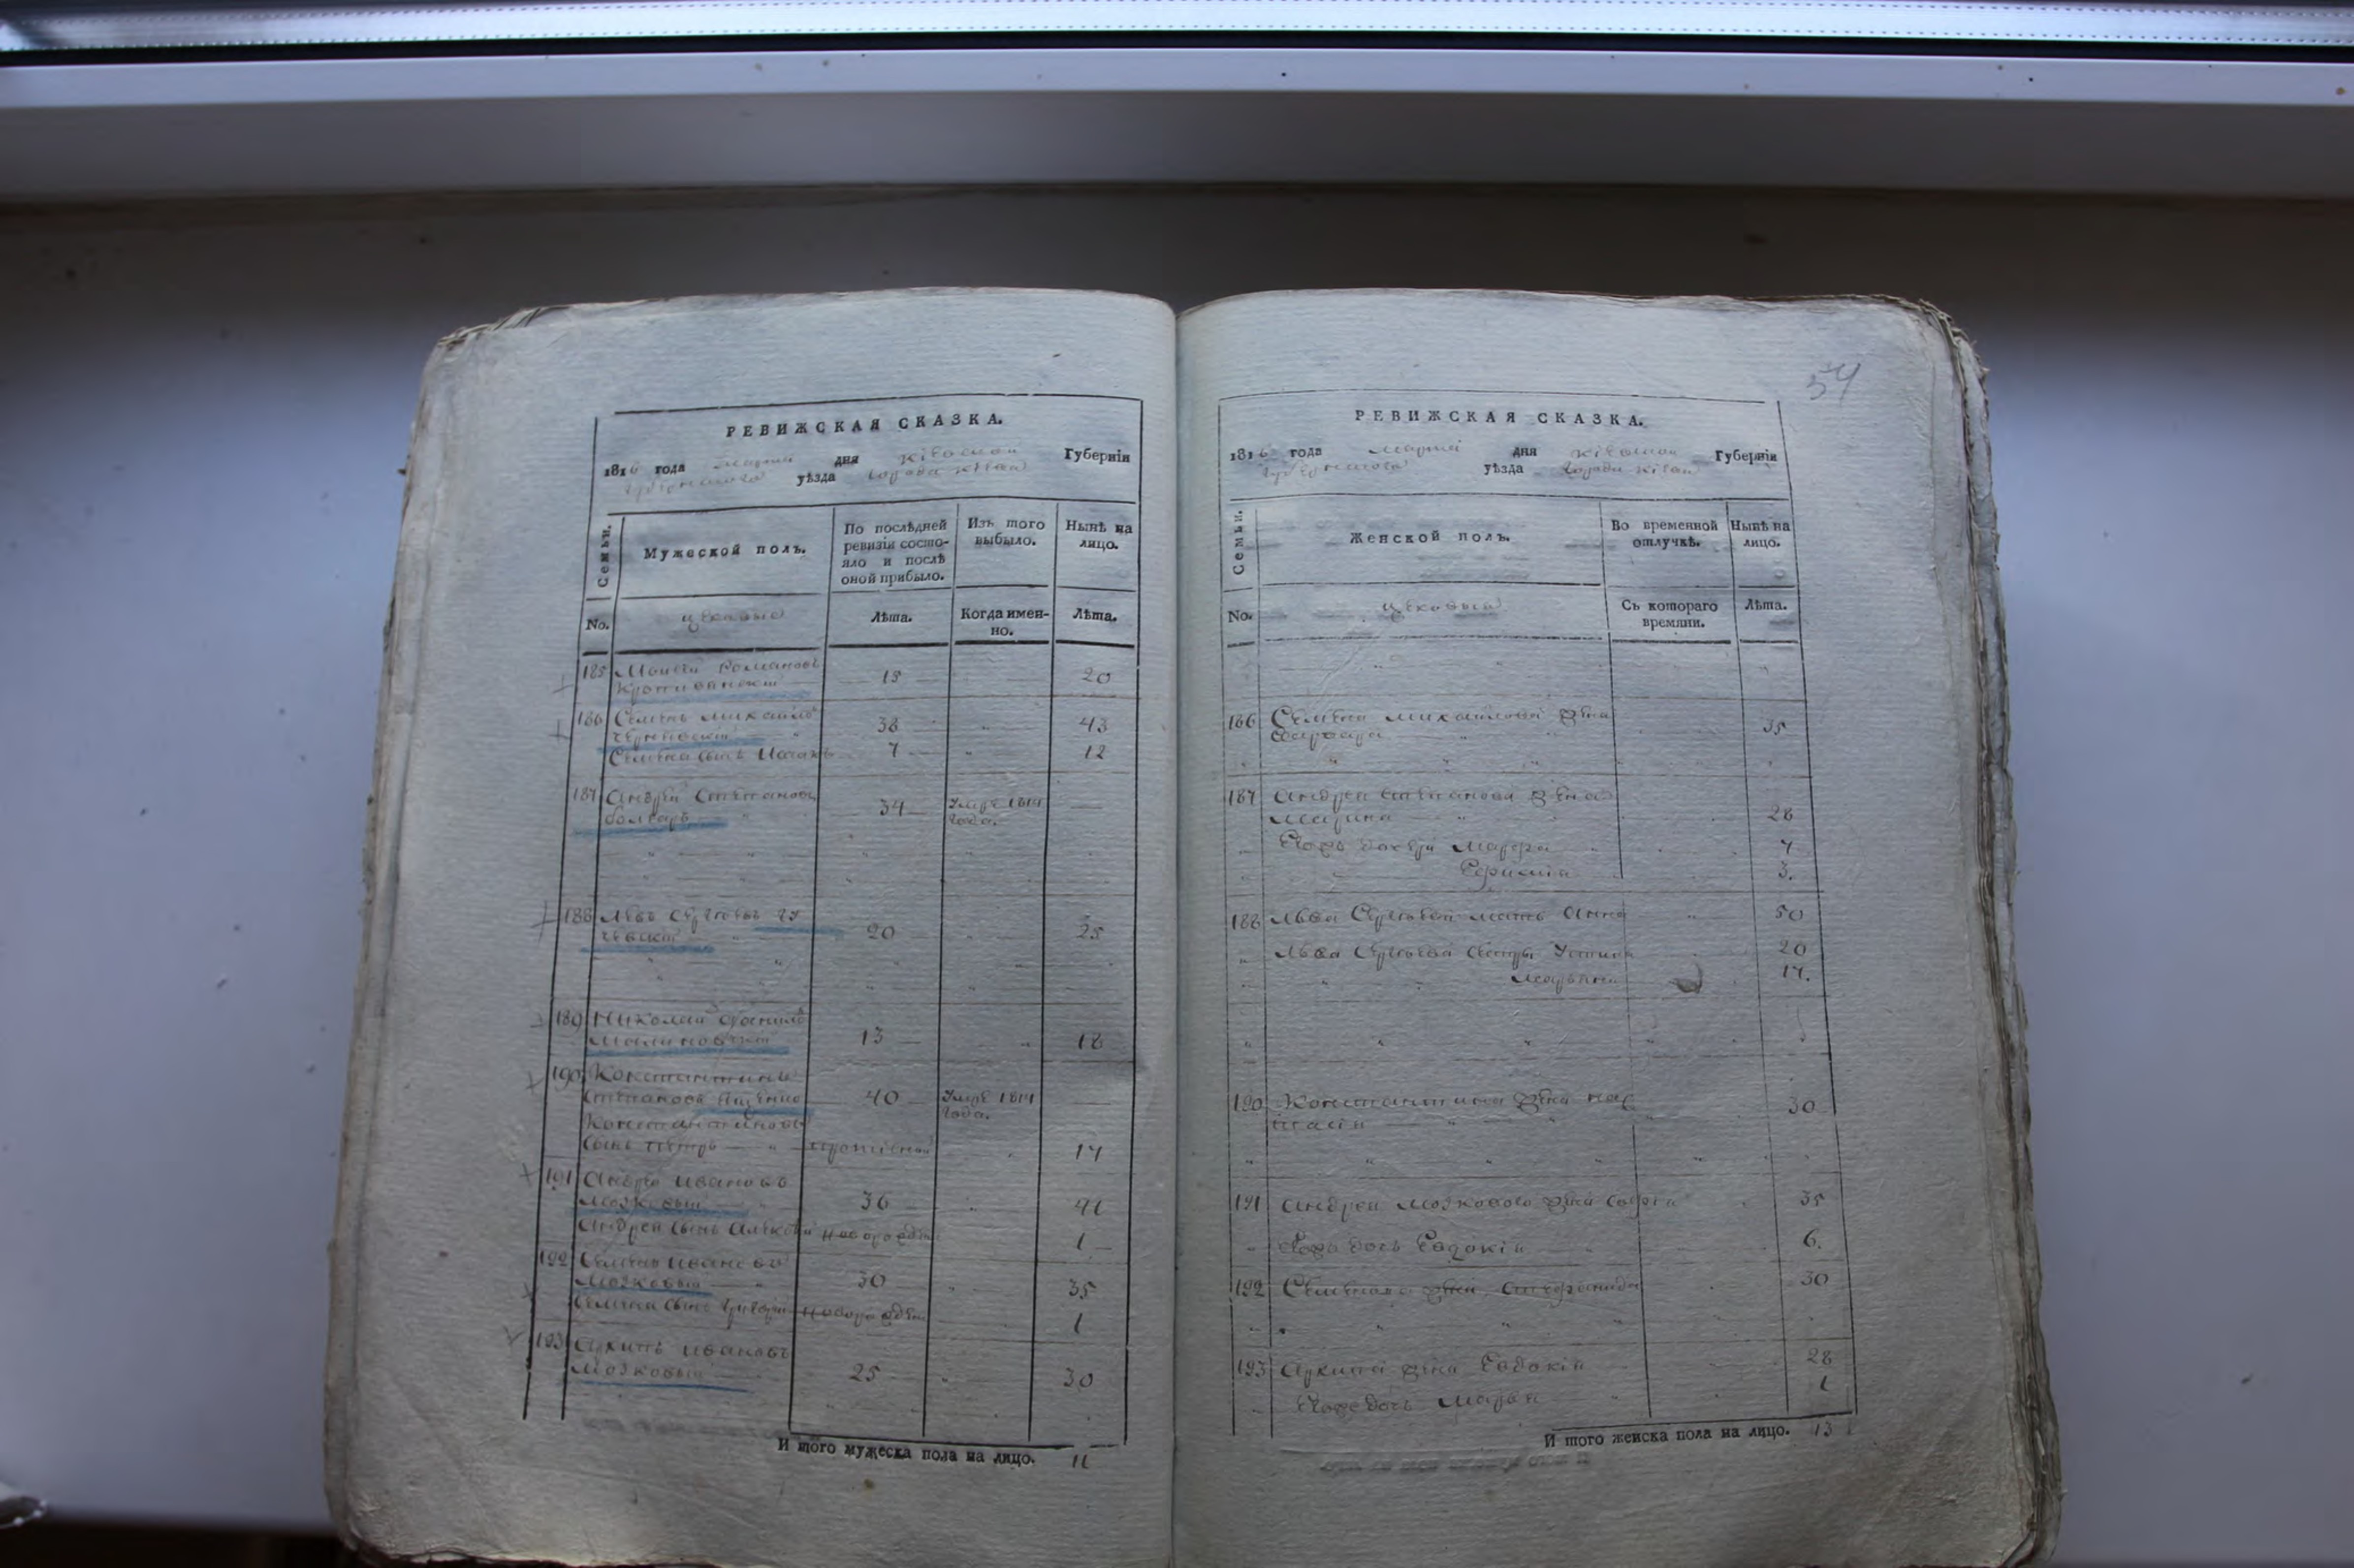 РЕВИЖСКАЯ СКАЗКА.
1816 года марта дня Кіевской Губерніи
Губернскаго уѣзда города Кіева
Семьи. Мужеской полъ. По послѣдней ревизіи состояло и послѣ оной прибыло. Изъ того выбыло. Нынѣ на лицо.
No. цеховые Лѣта. Когда именно. Лѣта.
185 Моисей Романовъ
15 20
186 Семенъ Михайловъ
38 43
Семена сынъ Исаакъ 7 12
187 Андрей Степановъ
болгаръ 34 Умре 1814 года.
188 Левъ Сергѣевъ
20 25
189 Николай Данилов
Малиновскій 13 18
190 Константинъ
Степановъ Ященко 40 Умре 1814 года.
Константиновъ
сынъ Петръ 17
191 Андрей Ивановъ
Мозковый 36 41
Андрея сынъ Алексѣй новорожден 1
192 Семенъ Ивановъ
Мозковый 30 35
Семена сынъ Григорій новорожден 1
193 Архипъ Ивановъ
Мозковый 25 30
И того мужеска пола на лицо. 11
54
РЕВИЖСКАЯ СКАЗКА.
1816 года марта дня Кіевской Губерніи
Губернскаго уѣзда города Кіева
Семьи. Женской полъ. Во временной отлучкѣ. Нынѣ на лицо.
No. цеховые Съ котораго времяни. Лѣта.
186 Семена Михайлова жена
Варвара 35
187 Андрея Степанова жена
Марина 28
Егожъ дочери Марфа 7
Ефимія 3.
188 Льва Сергѣева мать Анна 50
Льва Сергѣева сестры Устина 20
Марьяна 17.
190 Константина жена
30
191 Андрея Мозкового жена Софія 35
Егожъ дочь Евдокія 6.
192 Семенова жена Стефанида 30
193 Архипа жена Евдокія 28
Егоже дочь Марья 1
И того женска пола на лицо. 13